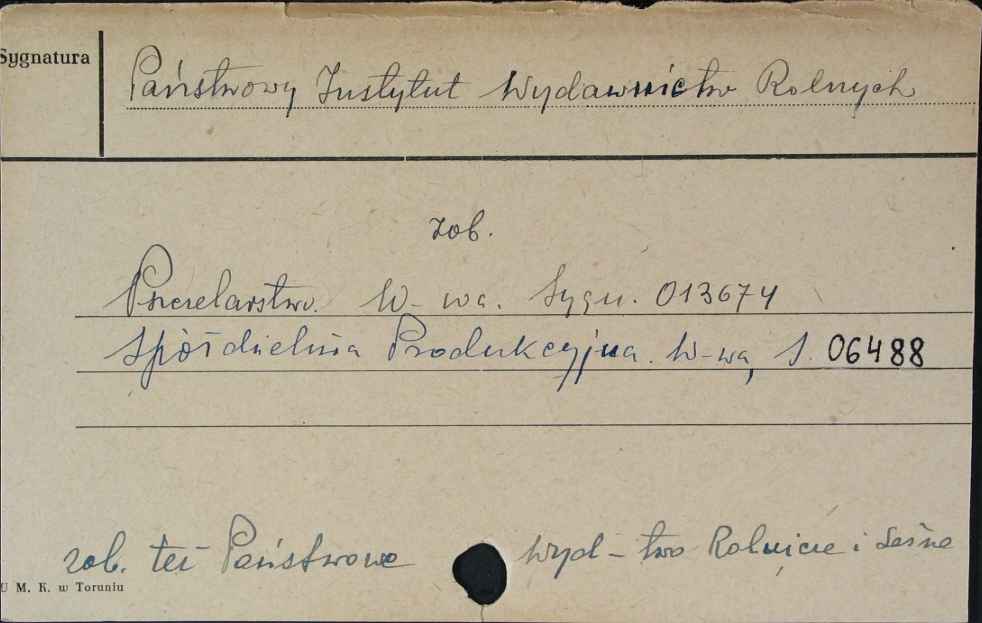 Sygnatura
Państwowy Instytut Wydawnictw Rolnych
zob.
Pszczelarstwo. W-wa. Sygn. 013674
Spółdzielnia Produkcyjna. W-wa, S. 06488
zob. też Państwowe Wyd-two Rolnicze i Leśne
U M. K. w Toruniu